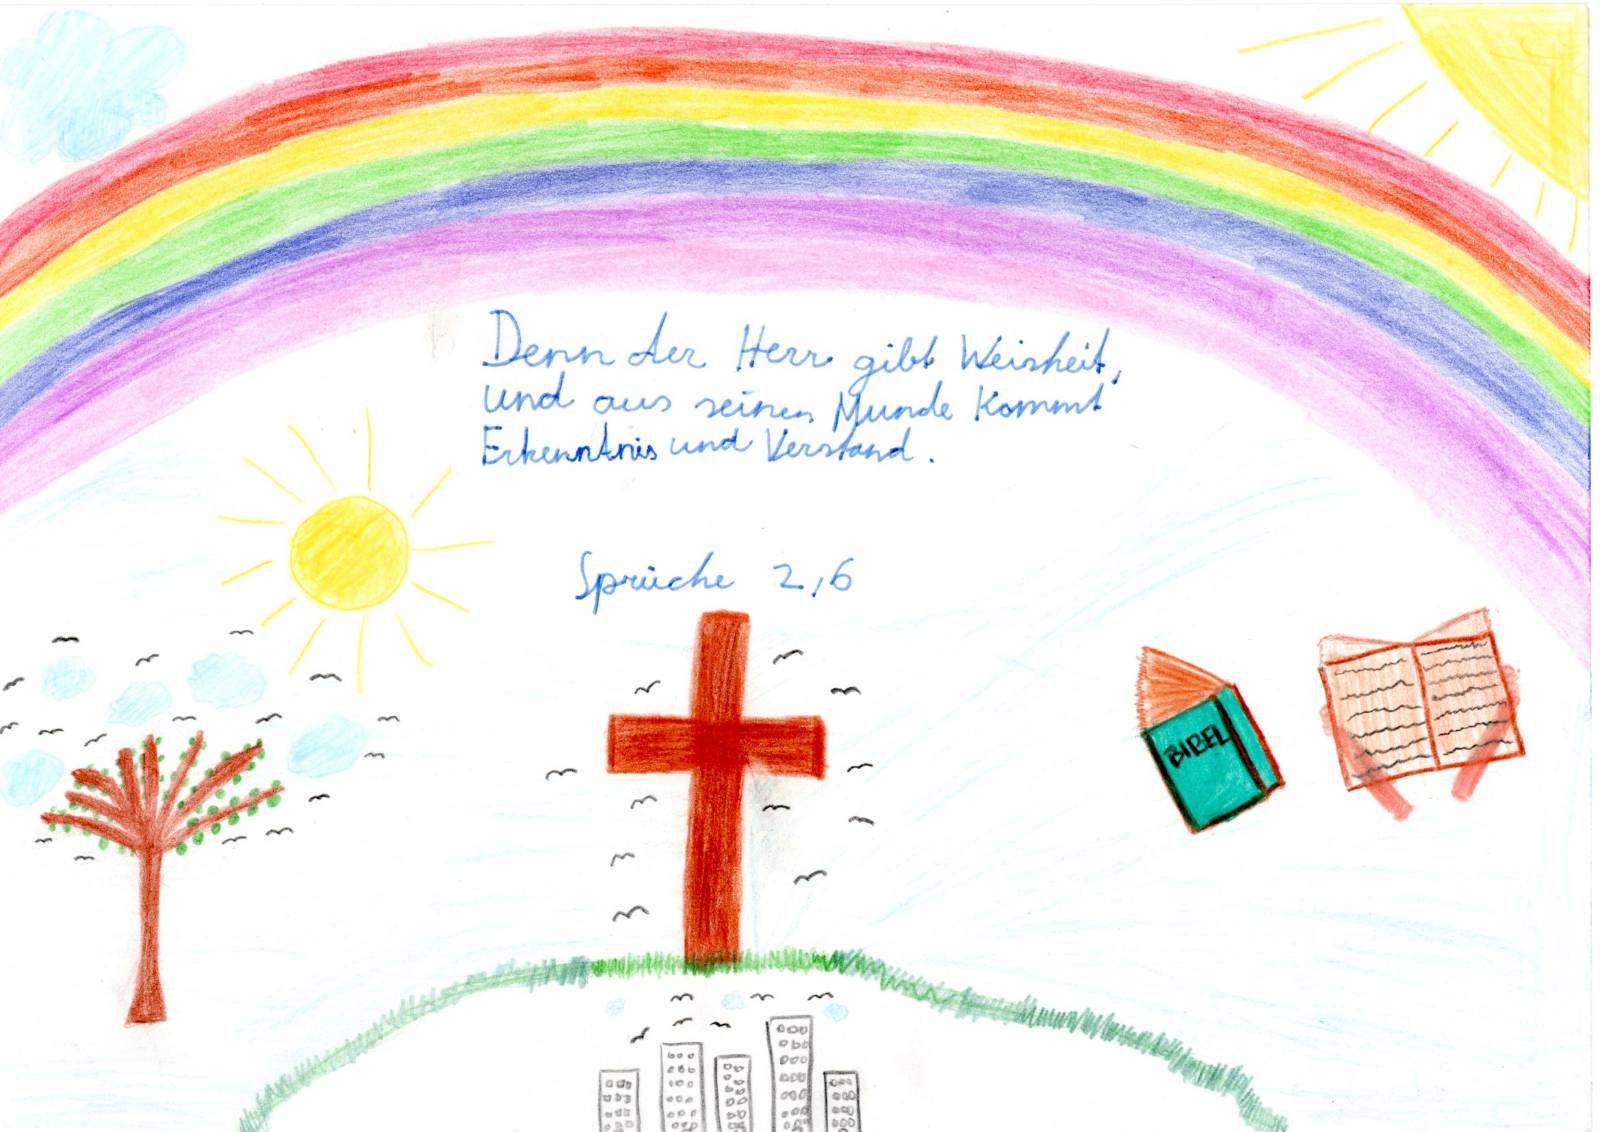 Denn der Herr gibt Weisheit,
und aus seinem Munde kommt
Erkenntnis und Verstand.
Sprüche 2,6
BIBEL